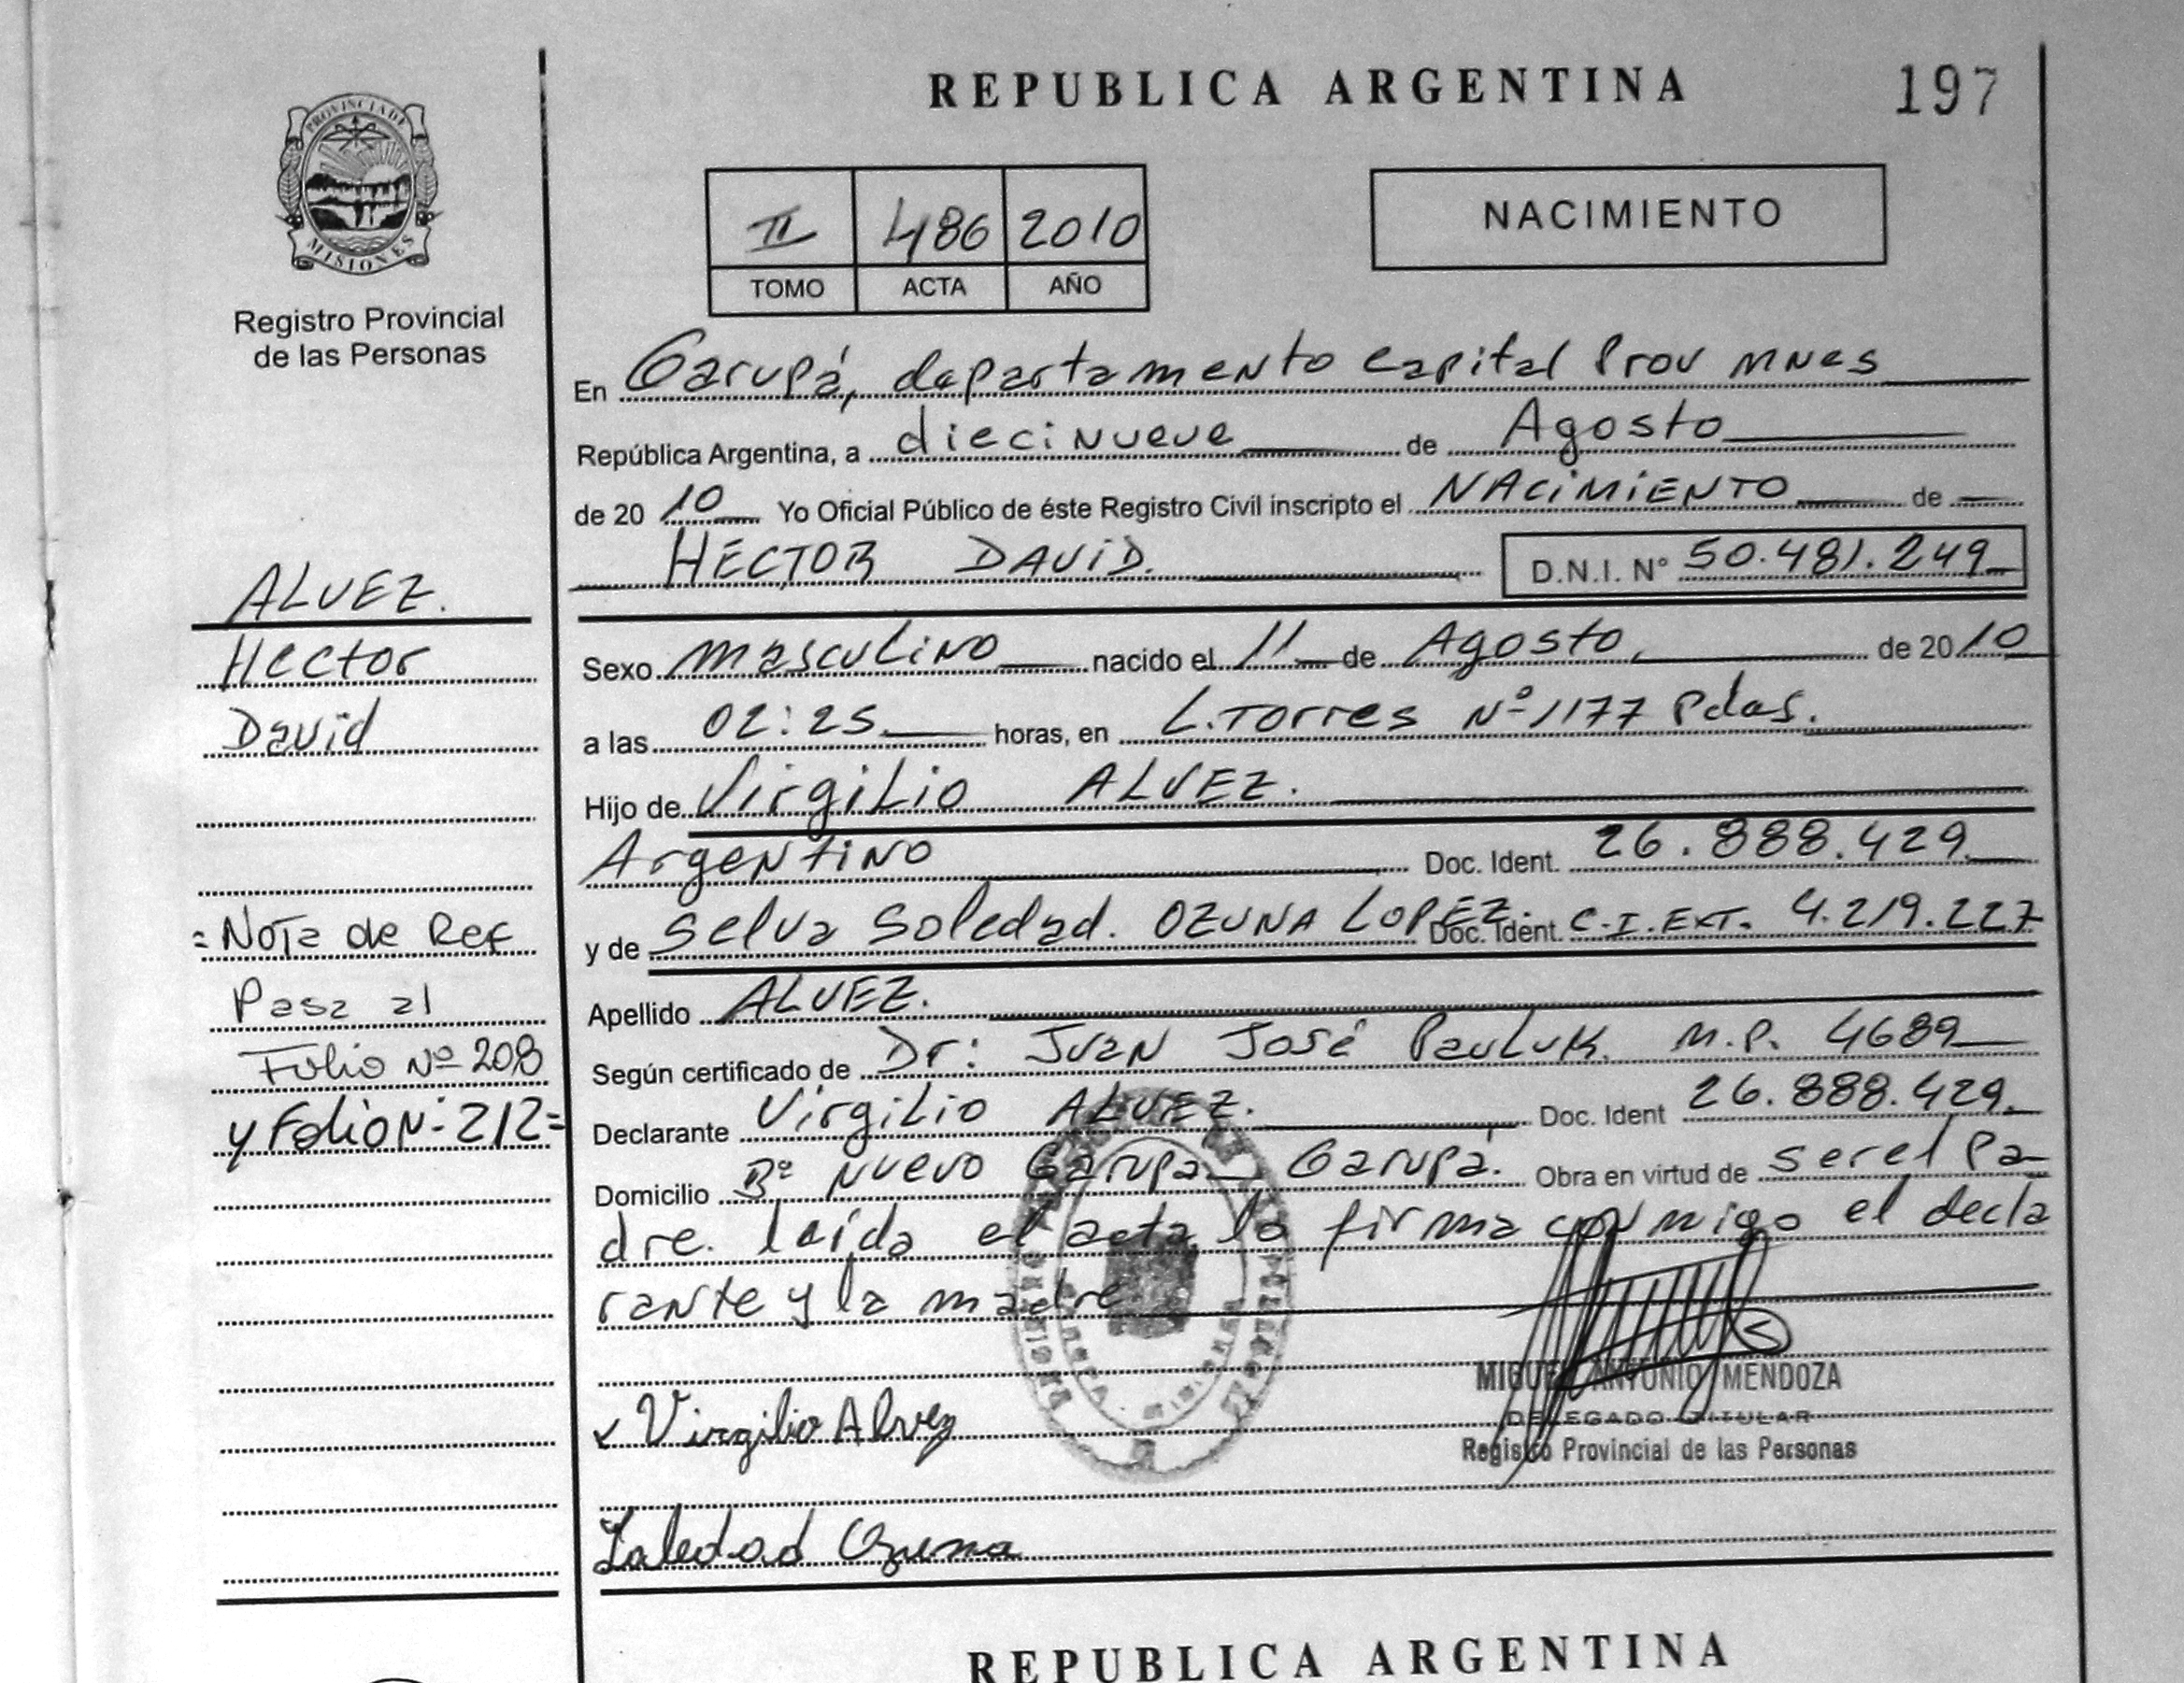 REPUBLICA ARGENTINA
197
PROVINCIA DE
MISIONES
Registro Provincial
de las Personas
II 486 2010
TOMO ACTA AÑO
NACIMIENTO
En Garupá, departamento Capital Prov Mnes
República Argentina, a diecinueve de Agosto
de 20 10 Yo Oficial Público de éste Registro Civil inscripto el NACIMIENTO de
HECTOR DAVID. D.N.I. N° 50.481.249
ALVEZ.
Hector
David
Sexo masculino nacido el 11 de Agosto, de 20 10
a las 02:25 horas, en L. Torres Nº 1177 Pdas.
Hijo de Virgilio ALVEZ.
Argentino Doc. Ident. 26.888.429
y de Selva Soledad. OZUNA LOPEZ. Doc. Ident. C.I. EXT. 4.219.227
Apellido ALVEZ.
Según certificado de Dr: Juan José Pauluk. M.P. 4689
Declarante Virgilio ALVEZ. Doc. Ident 26.888.429.
Domicilio Bº Nuevo Garupá Garupá. Obra en virtud de ser el Pa
dre. leida el acta la firma conmigo el decla
rante y la madre
= Nota de Ref
Pasa al
Folio Nº 208
y Folio N- 212=
MIGUEL ANTONIO MENDOZA
DELEGADO TITULAR
Registro Provincial de las Personas
Virgilio Alvez
Soledad Ozuna
REPUBLICA ARGENTINA